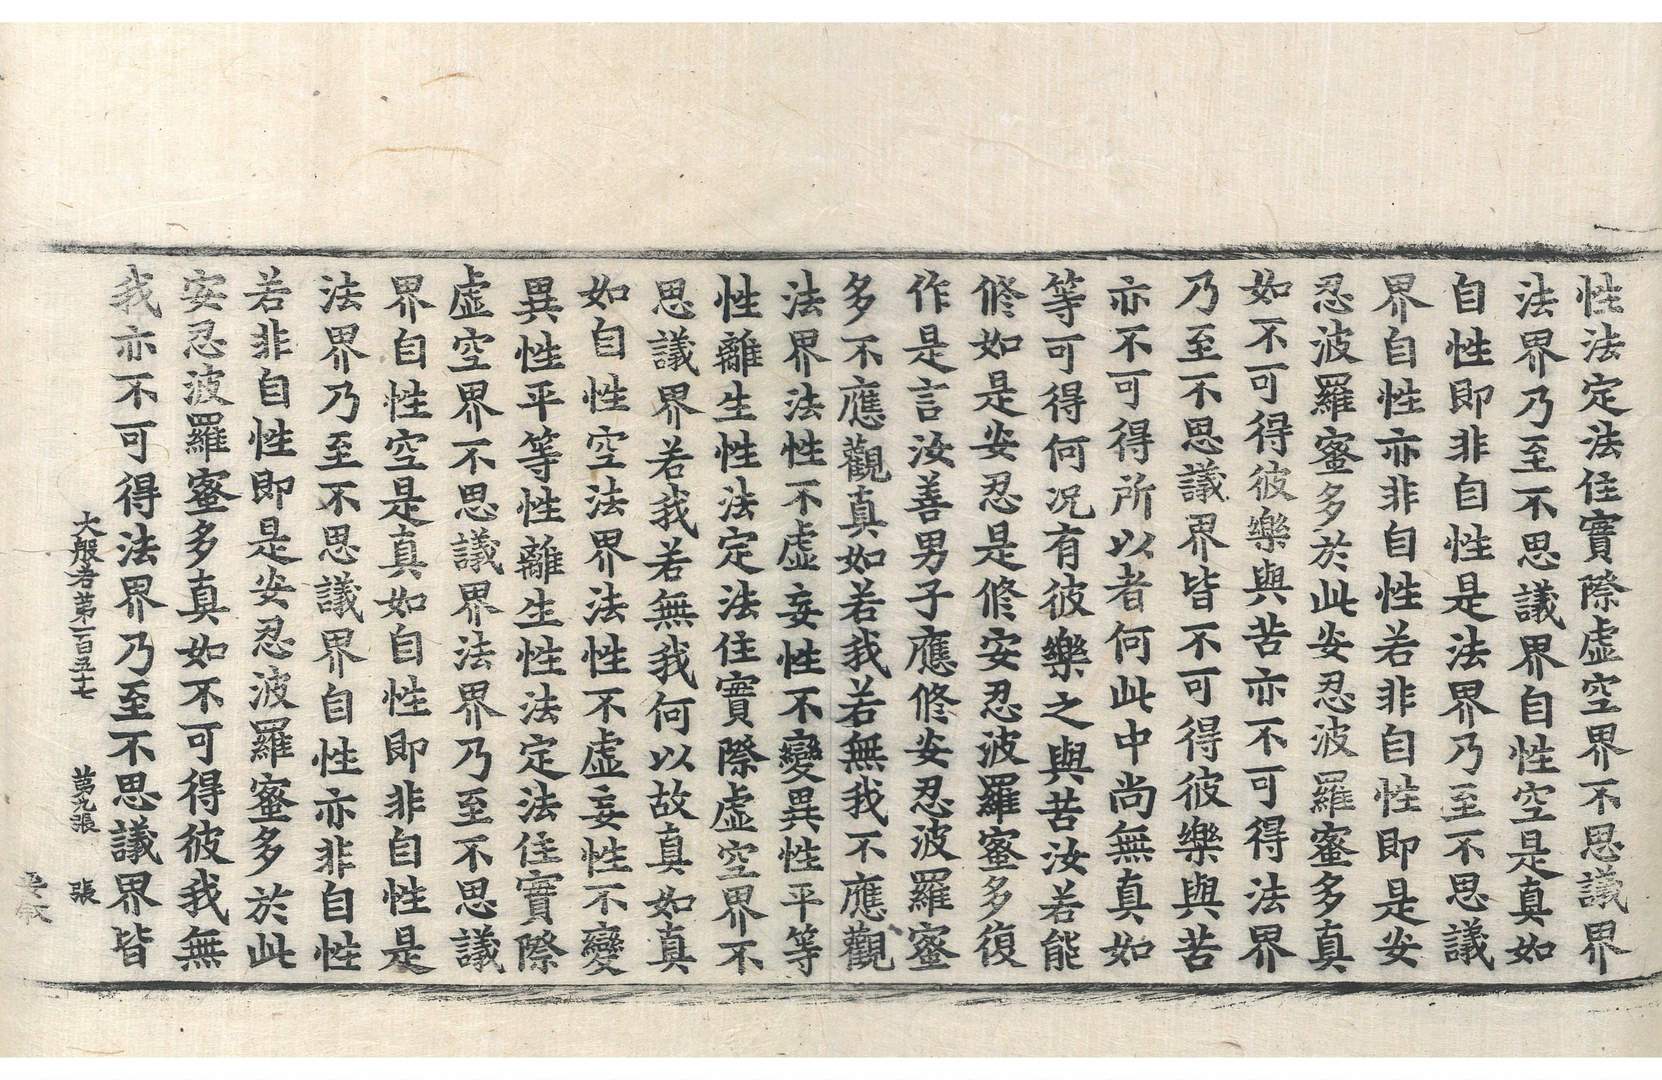 性法定法住實際虛空界不思議界
法界乃至不思議界自性空是真如
自性即非自性是法界乃至不思議
界自性亦非自性若非自性即是安
忍波羅蜜多於此安忍波羅蜜多真
如不可得彼樂與苦亦不可得法界
乃至不思議界皆不可得彼樂與苦
亦不可得所以者何此中尚無真如
等可得何況有彼樂之與苦汝若能
修如是安忍是修安忍波羅蜜多復
作是言汝善男子應修安忍波羅蜜
多不應觀真如若我若無我不應觀
法界法性不虛妄性不變異性平等
性離生性法定法住實際虛空界不
思議界若我若無我何以故真如真
如自性空法界法性不虛妄性不變
異性平等性離生性法定法住實際
虛空界不思議界法界乃至不思議
界自性空是真如自性即非自性是
法界乃至不思議界自性亦非自性
若非自性即是安忍波羅蜜多於此
安忍波羅蜜多真如不可得彼我無
我亦不可得法界乃至不思議界皆
大般若第一百五十七 第九張 張